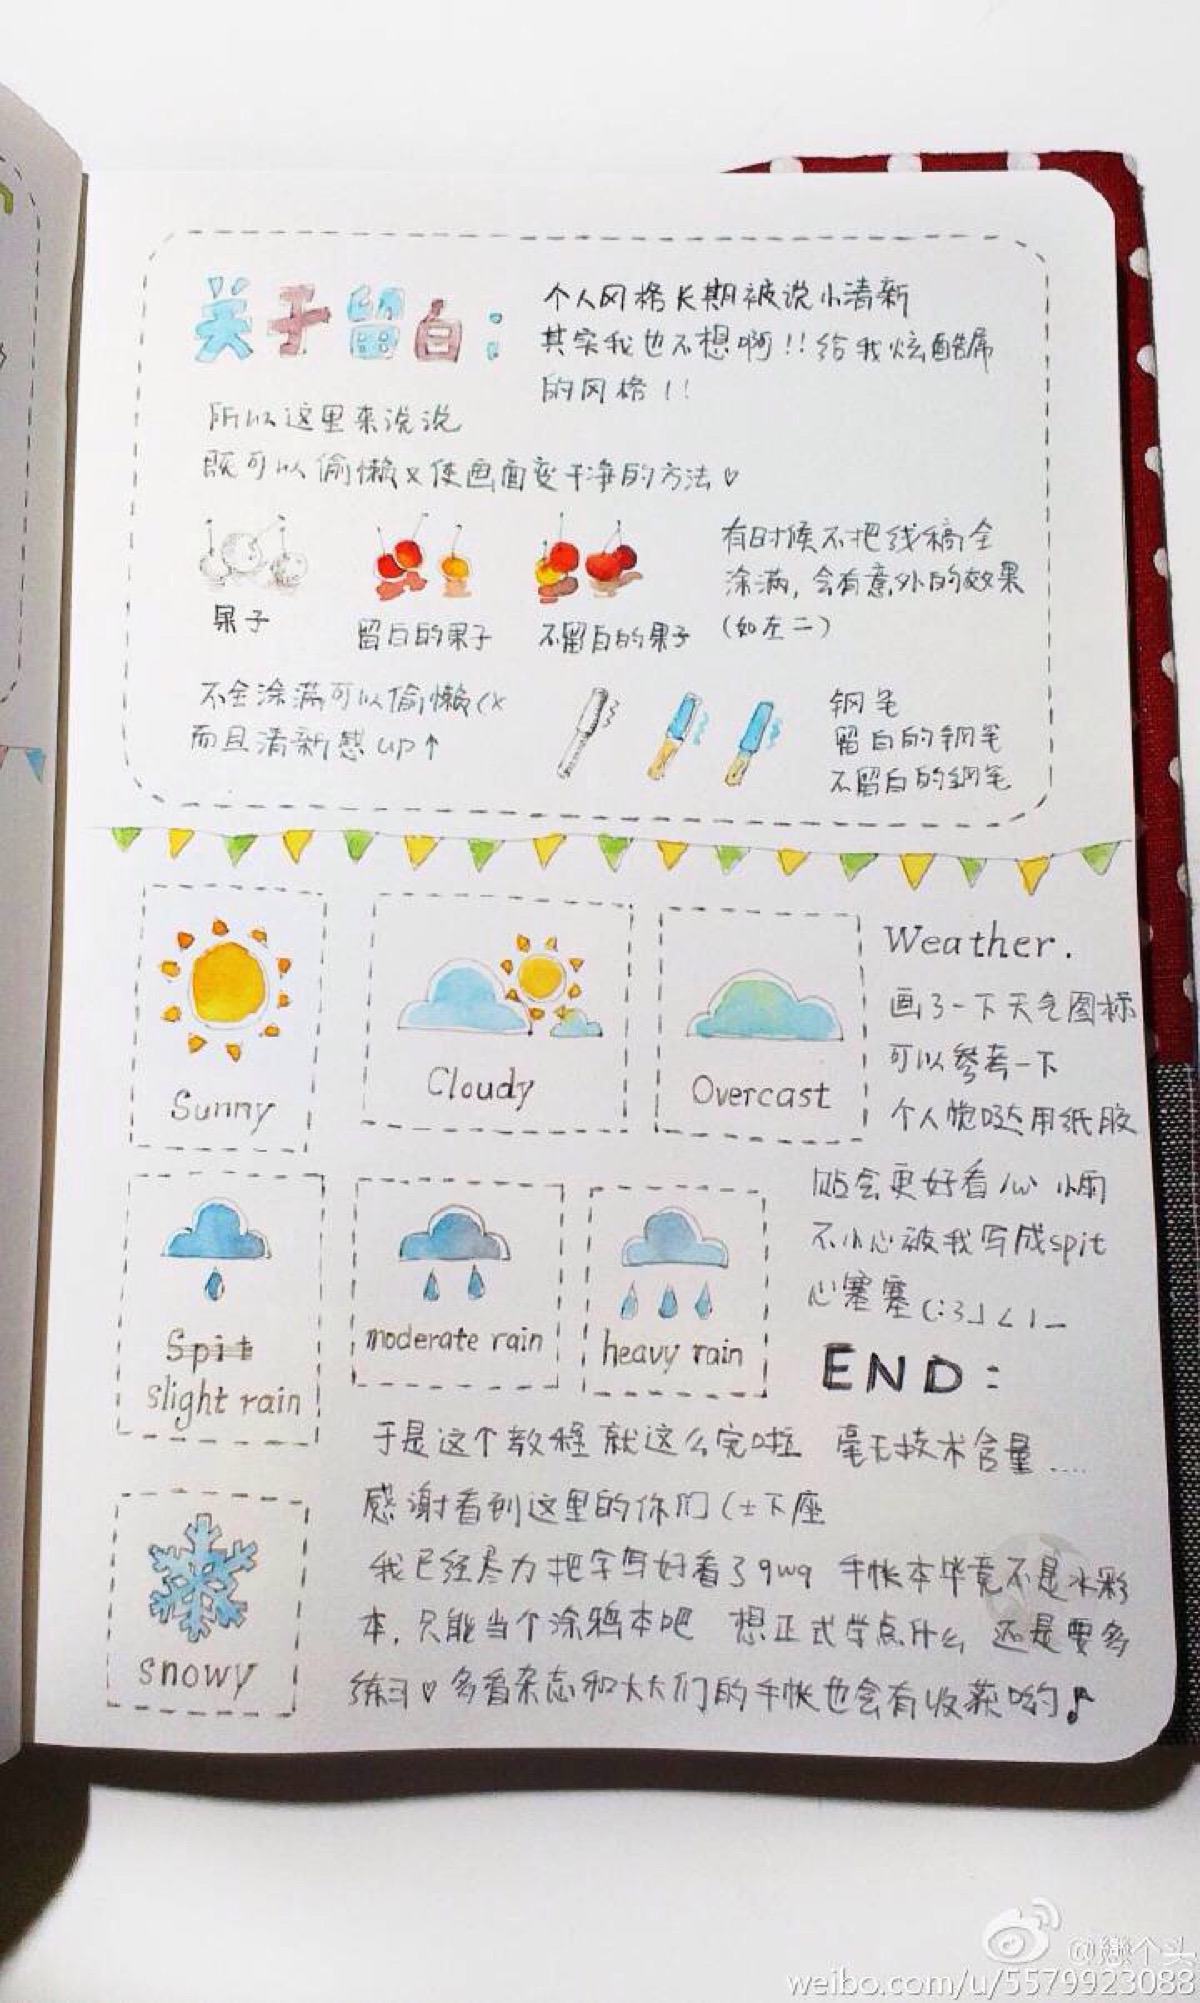 关于留白：
个人风格长期被说小清新
其实我也不想啊!!给我炫酷屌
的风格!!
所以这里来说说
既可以偷懒又使画面变干净的方法♡
果子
留白的果子
不留白的果子
有时候不把线稿全
涂满,会有意外的效果
(如左二)
不全涂满可以偷懒(x
而且清新感up↑
钢笔
留白的钢笔
不留白的钢笔
Sunny
Cloudy
Overcast
Weather.
画了一下天气图标
可以参考一下
个人觉哒用纸胶
贴会更好看/w\小雨
不小心被我写成spit
心塞塞(:3」∠)_
Spit
slight rain
moderate rain
heavy rain
snowy
END:
于是这个教程就这么完啦 毫无技术含量....
感谢看到这里的你们(土下座
我已经尽力把字写好看了qwq 手帐本毕竟不是水彩
本,只能当个涂鸦本吧 想正式学点什么 还是要多
练习♡多看杂志和太太们的手帐也会有收获哟♪
weibo.com/u/5579923088